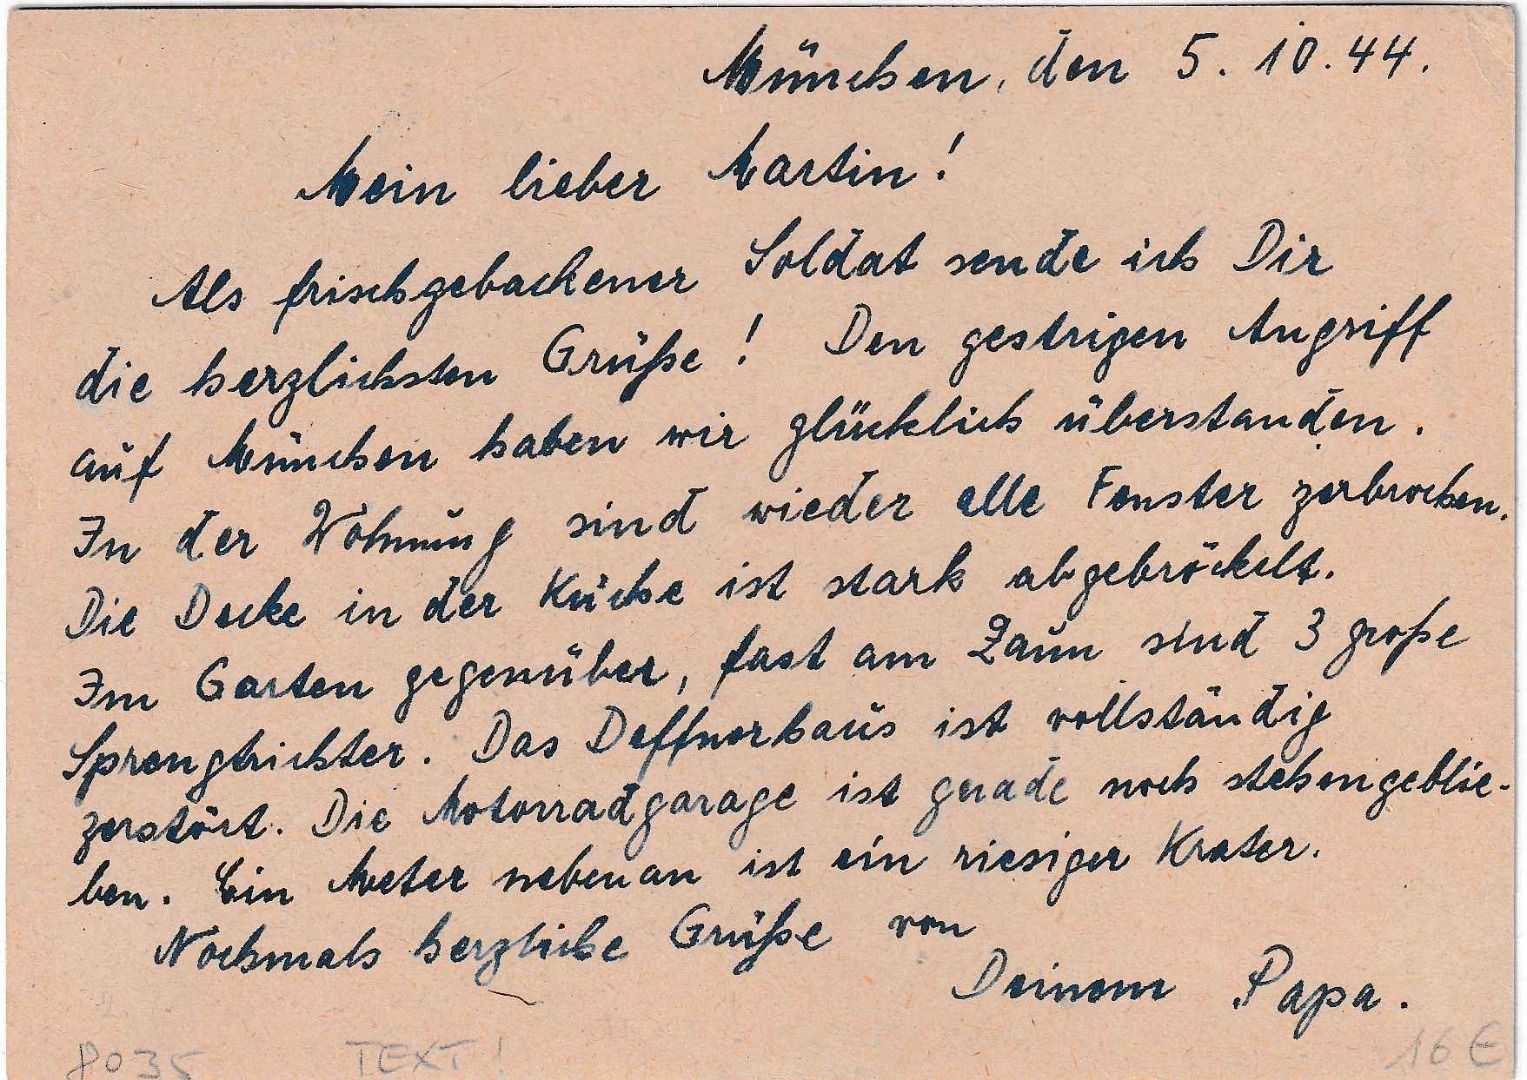 München, den 5. 10. 44.
Mein lieber Martin!
Als frischgebackener Soldat sende ich Dir
die herzlichsten Grüße! Den gestrigen Angriff
auf München haben wir glücklich überstanden.
In der Wohnung sind wieder alle Fenster zerbrochen.
Die Decke in der Küche ist stark abgebröckelt.
Im Garten gegenüber, fast am Zaun sind 3 große
Sprengtrichter. Das Deffnerhaus ist vollständig
zerstört. Die Motorradgarage ist gerade noch stehengeblie-
ben. Ein Meter nebenan ist ein riesiger Krater.
Nochmals herzliche Grüße von
Deinem Papa.
8035 TEXT! 16 €